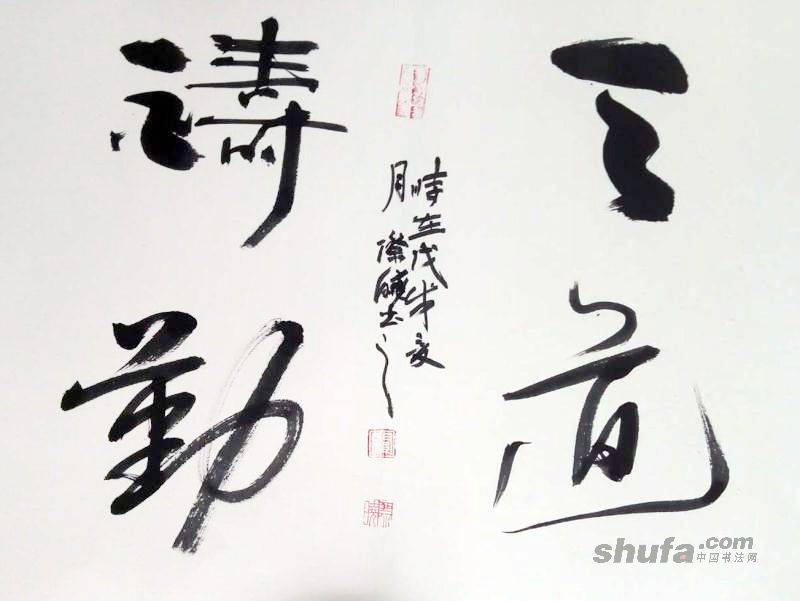 天道
譸勤
時在戊戌夏
月書
shufa.com
中国书法网